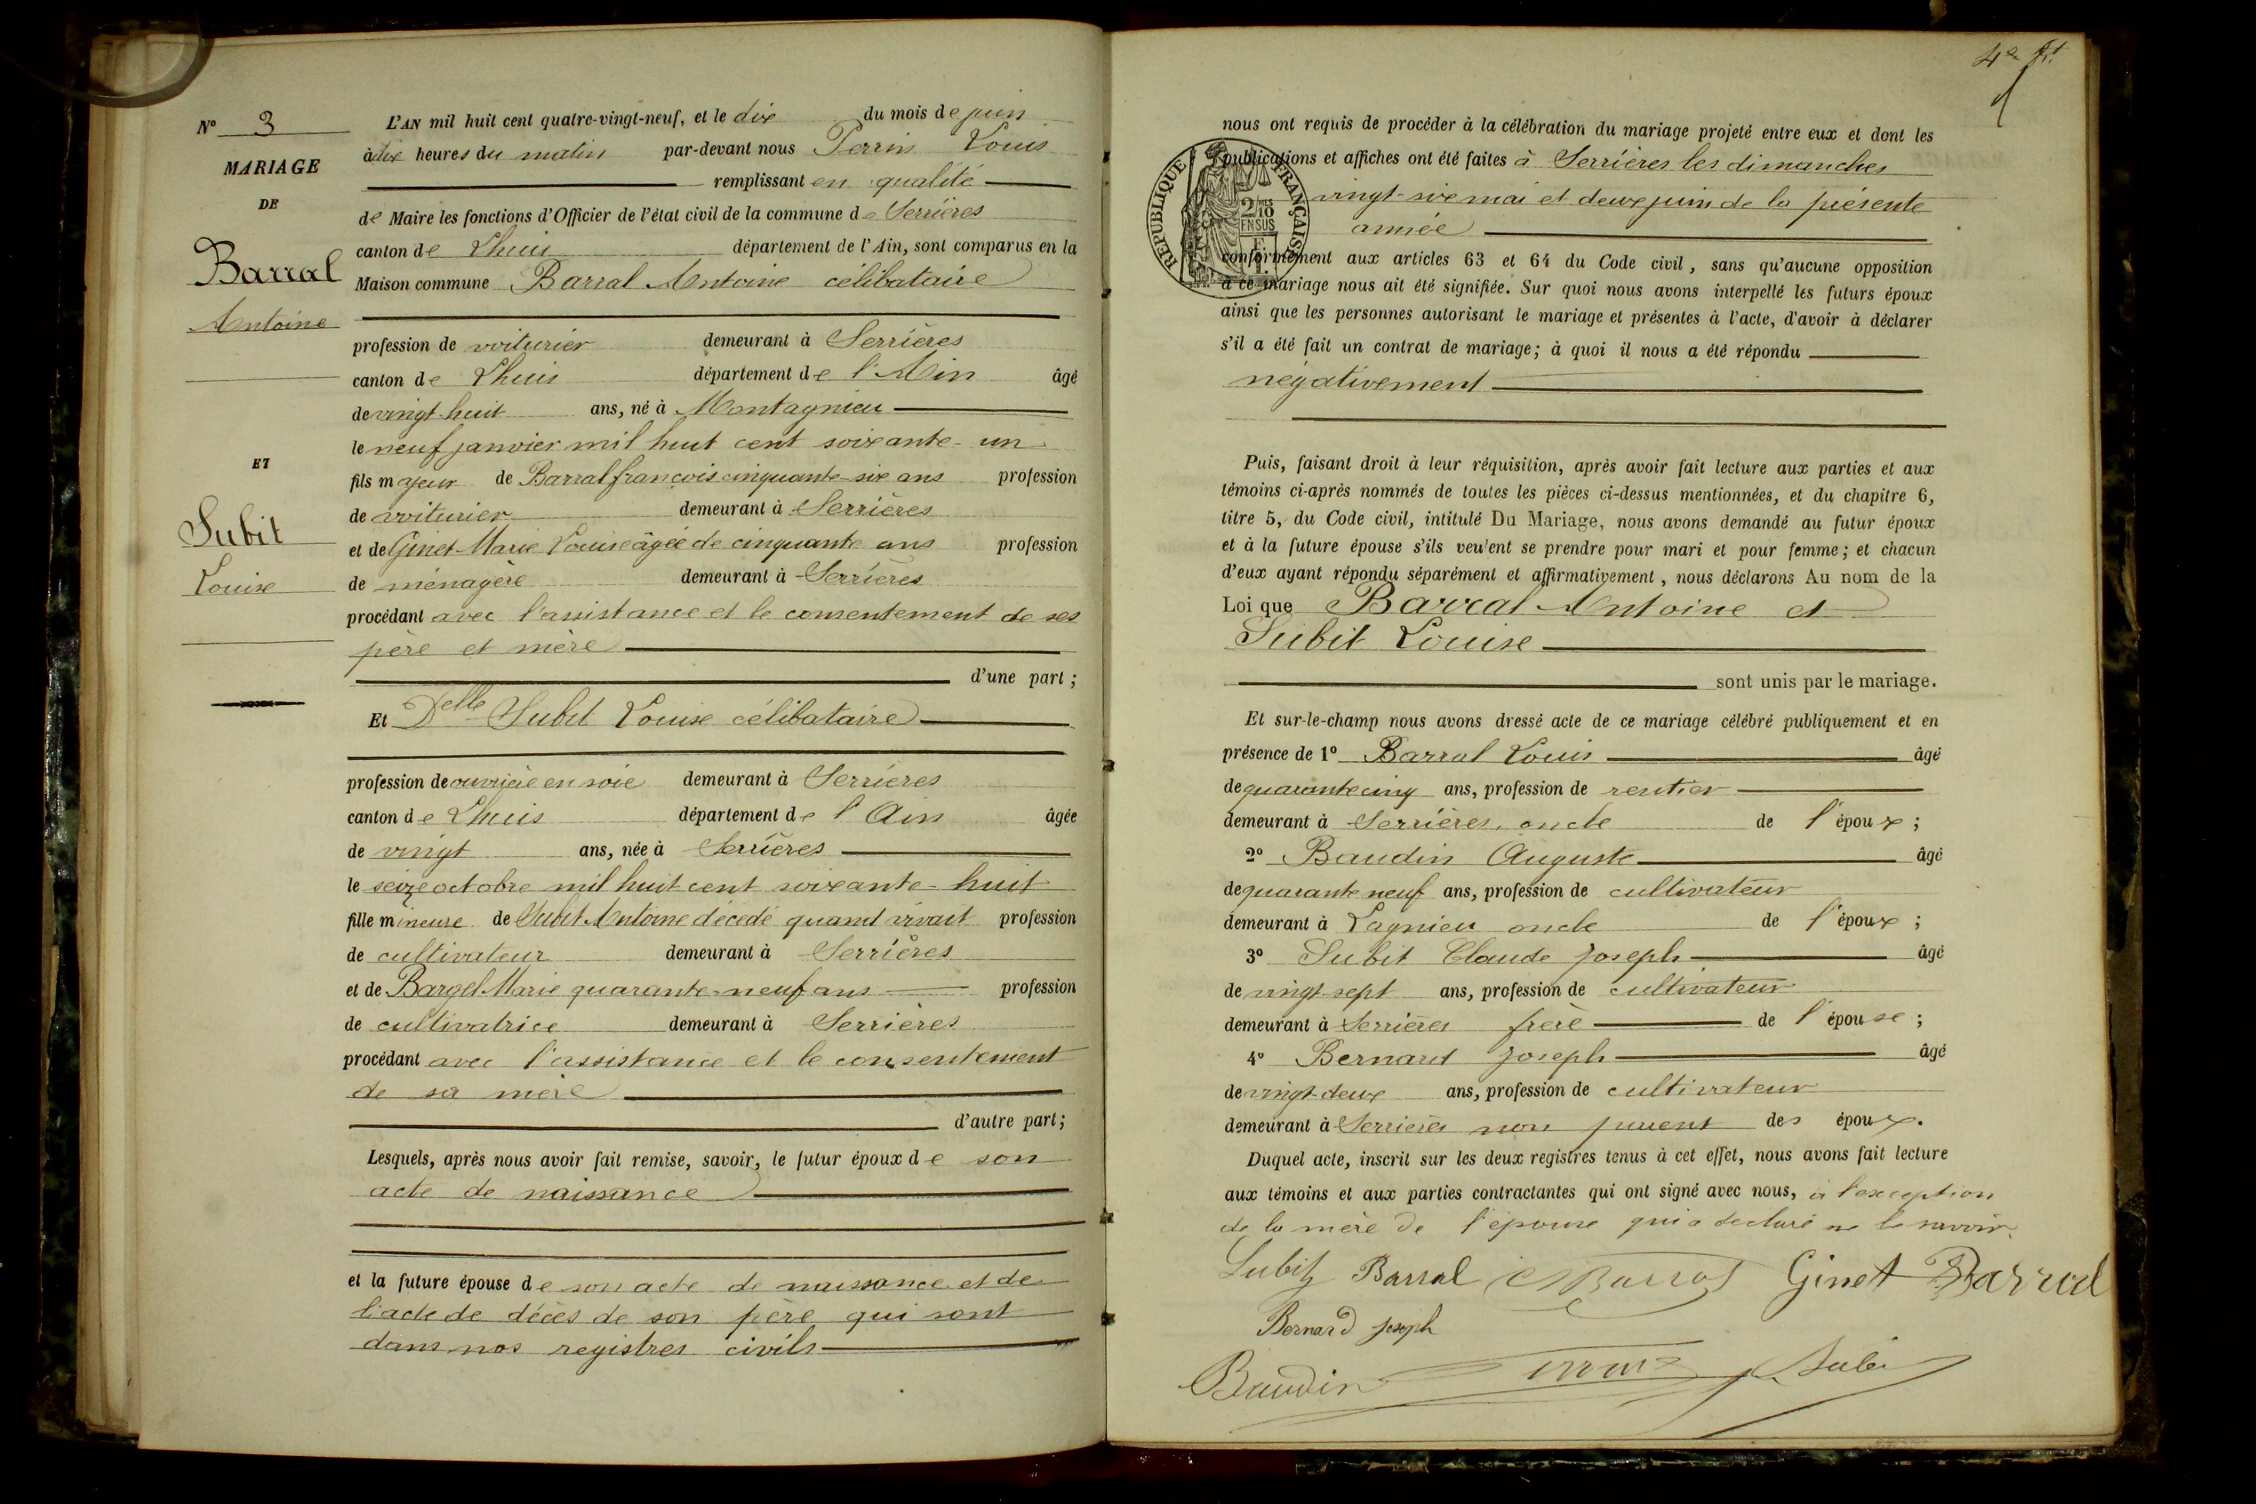 N° 3
MARIAGE
DE
Barral
Antoine
ET
Subit
Louise
L'AN mil huit cent quatre-vingt-neuf, et le dix du mois de juin
à dix heures du matin par-devant nous Perrin Louis
remplissant en qualité
de Maire les fonctions d'Officier de l'état civil de la commune de Serrières
canton de Lhuis département de l'Ain, sont comparus en la
Maison commune Barral Antoine célibataire
profession de voiturier demeurant à Serrières
canton de Lhuis département de l'Ain âgé
de vingt huit ans, né à Montagnieu
le neuf janvier mil huit cent soixante-un
fils majeur de Barral françois cinquante-six ans profession
de voiturier demeurant à Serrières
et de Ginet Marie Louise âgée de cinquante ans profession
de ménagère demeurant à Serrières
procédant avec l'assistance et le consentement de ses
père et mère
d'une part ;
Et Delle Subit Louise célibataire
profession de ouvrière en soie demeurant à Serrieres
canton de Lhuis département de l'Ain âgée
de vingt ans, née à Serrières
le seize octobre mil huit cent soixante-huit
fille mineure de Subit Antoine décédé quand vivait profession
de cultivateur demeurant à Serrières
et de Barget Marie quarante-neuf ans profession
de cultivatrice demeurant à Serrières
procédant avec l'assistance et le consentement
de sa mère
d'autre part ;
Lesquels, après nous avoir fait remise, savoir, le futur époux de son
acte de naissance
et la future épouse de son acte de naissance et de
l'acte de décès de son père qui sont
dans nos registres civils
4e
nous ont requis de procéder à la célébration du mariage projeté entre eux et dont les
publications et affiches ont été faites à Serrières les dimanches
vingt-six mai et deux juin de la présente
année
RÉPUBLIQUE FRANÇAISE
2/10 EN SUS
conformément aux articles 63 et 64 du Code civil, sans qu'aucune opposition
à ce mariage nous ait été signifiée. Sur quoi nous avons interpellé les futurs époux
ainsi que les personnes autorisant le mariage et présentes à l'acte, d'avoir à déclarer
s'il a été fait un contrat de mariage ; à quoi il nous a été répondu
négativement
Puis, faisant droit à leur réquisition, après avoir fait lecture aux parties et aux
témoins ci-après nommés de toutes les pièces ci-dessus mentionnées, et du chapitre 6,
titre 5, du Code civil, intitulé Du Mariage, nous avons demandé au futur époux
et à la future épouse s'ils veulent se prendre pour mari et pour femme ; et chacun
d'eux ayant répondu séparément et affirmativement, nous déclarons Au nom de la
Loi que Barral Antoine et
Subit Louise
sont unis par le mariage.
Et sur-le-champ nous avons dressé acte de ce mariage célébré publiquement et en
présence de 1° Barral Louis âgé
de quarante cinq ans, profession de rentier
demeurant à Serrières, oncle de l'époux ;
2° Baudin Auguste âgé
de quarante neuf ans, profession de cultivateur
demeurant à Lagnieu oncle de l'époux ;
3° Subit Claude Joseph âgé
de vingt-sept ans, profession de cultivateur
demeurant à Serrières frère de l'épouse ;
4° Bernard Joseph âgé
de vingt-deux ans, profession de cultivateur
demeurant à Serrières non parent des époux.
Duquel acte, inscrit sur les deux registres tenus à cet effet, nous avons fait lecture
aux témoins et aux parties contractantes qui ont signé avec nous, à l'exception
de la mère de l'épouse qui a déclaré ne le savoir.
Subit Barral Barral Ginet Barral
Bernard Joseph
Baudin Perrin Subit